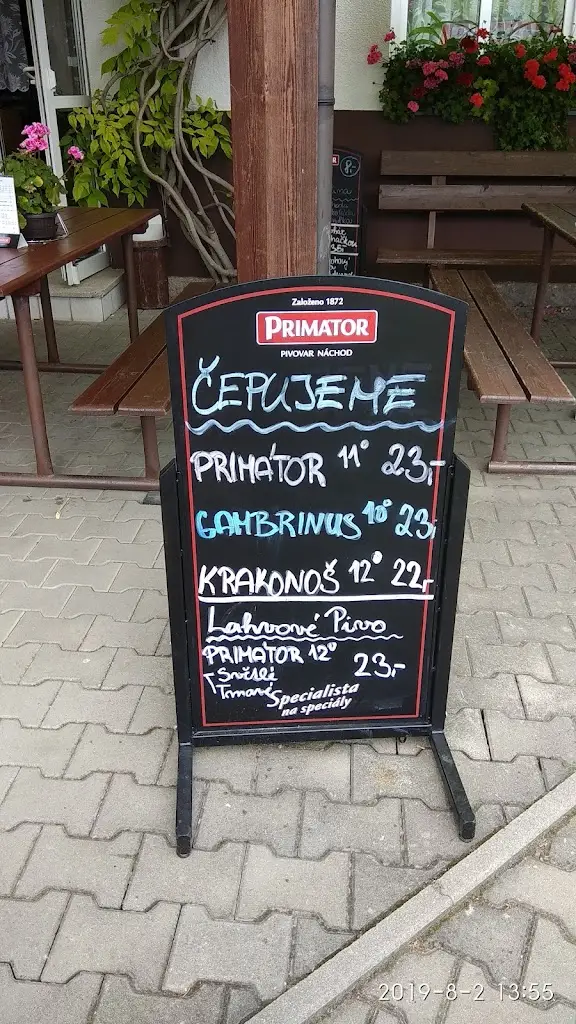 Založeno 1872
PRIMATOR
PIVOVAR NÁCHOD
ČEPUJEME
PRIMÁTOR 11° 23,-
GAMBRINUS 10° 23,
KRAKONOŠ 12° 22,-
Lahvové Pivo
PRIMÁTOR 12° 23,-
Tmavé
Specialista
na speciály
2019-8-2 13:55